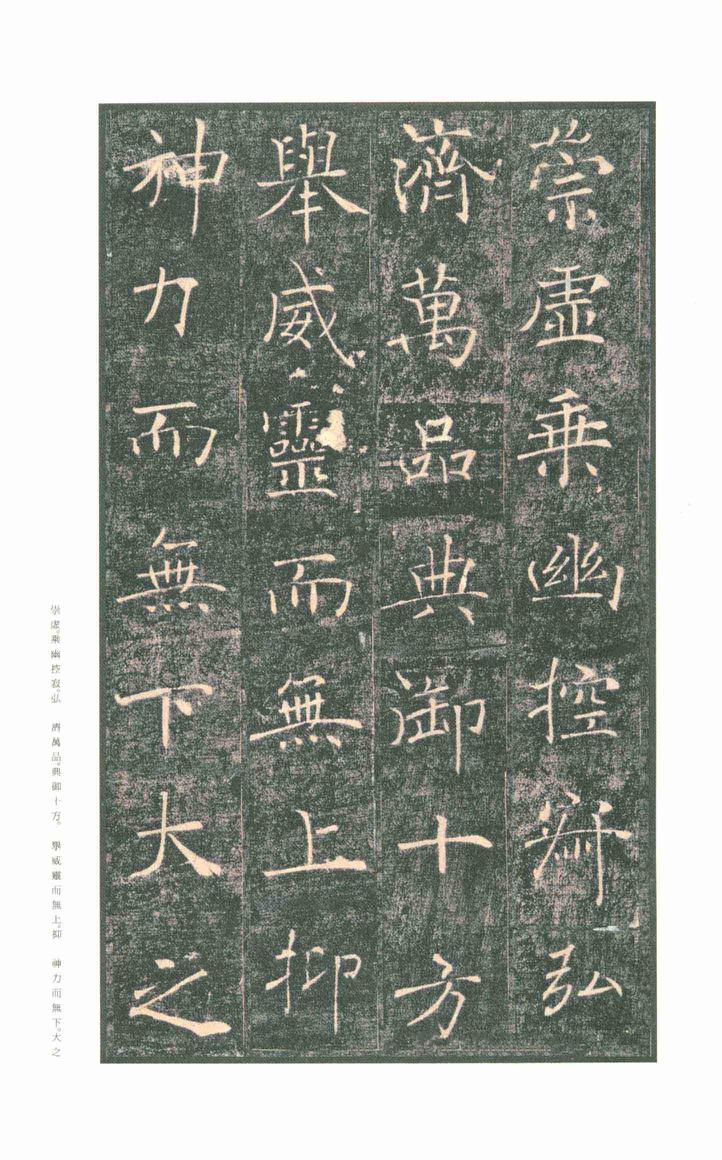 崇虛乘幽控寂弘
濟萬品典御十方
舉威靈而無上抑
神力而無下大之
崇虛。乘幽控寂。弘　濟萬品。典御十方。　舉威靈而無上。抑　神力而無下。大之